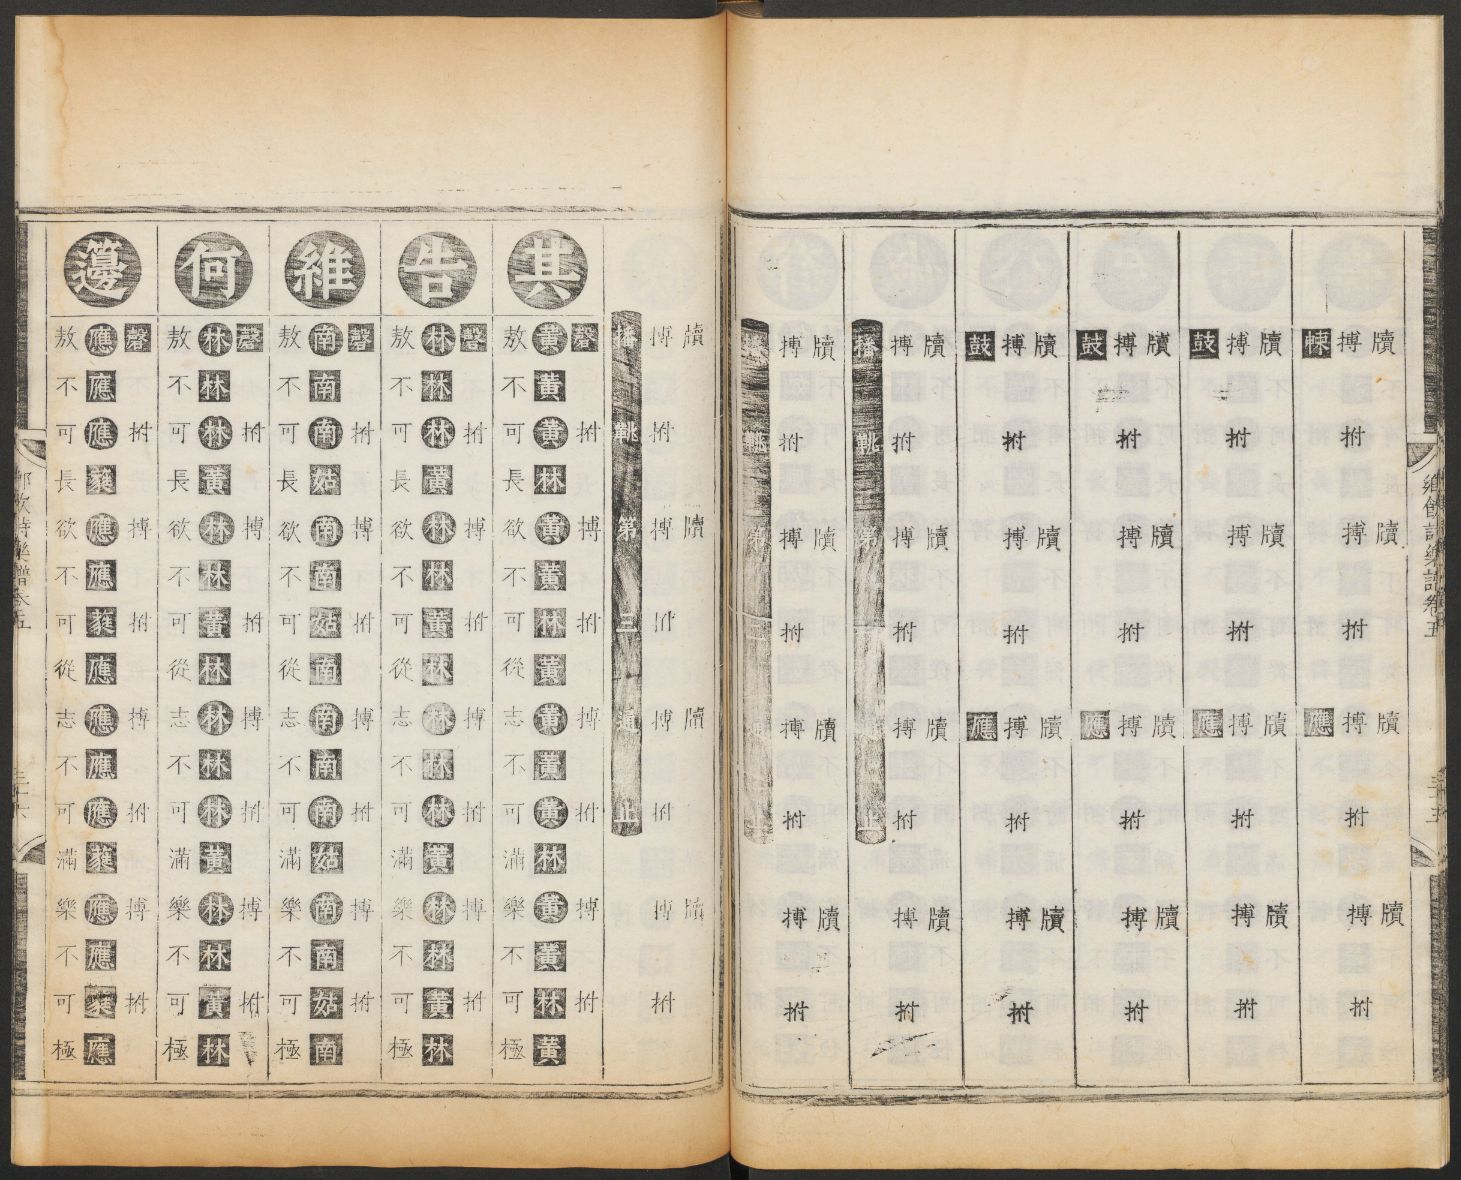 鄉飲詩樂譜卷五
三十五
牘牘牘牘
搏拊搏拊搏拊搏拊
朄應
牘牘牘牘
搏拊搏拊搏拊搏拊
鼓應
牘牘牘牘
搏拊搏拊搏拊搏拊
鼓應
牘牘牘牘
搏拊搏拊搏拊搏拊
鼓應
牘牘牘牘
搏拊搏拊搏拊搏拊
播鞉第一通止
牘牘牘牘
搏拊搏拊搏拊搏拊
播鞉第
牘牘牘牘
搏拊搏拊搏拊搏拊
播鞉第三通止
其
磬拊搏拊搏拊搏拊
黃黃黃林黃黃林黃黃黃黃林黃黃林黃
敖不可長欲不可從志不可滿樂不可極
告
磬拊搏拊搏拊搏拊
林林林黃林林黃林林林林黃林林黃林
敖不可長欲不可從志不可滿樂不可極
維
磬拊搏拊搏拊搏拊
南南南姑南南姑南南南南姑南南姑南
敖不可長欲不可從志不可滿樂不可極
何
磬拊搏拊搏拊搏拊
林林林黃林林黃林林林林黃林林黃林
敖不可長欲不可從志不可滿樂不可極
籩
磬拊搏拊搏拊搏拊
應應應蕤應應蕤應應應應蕤應應蕤應
敖不可長欲不可從志不可滿樂不可極
鄉飲詩樂譜卷五
三十六